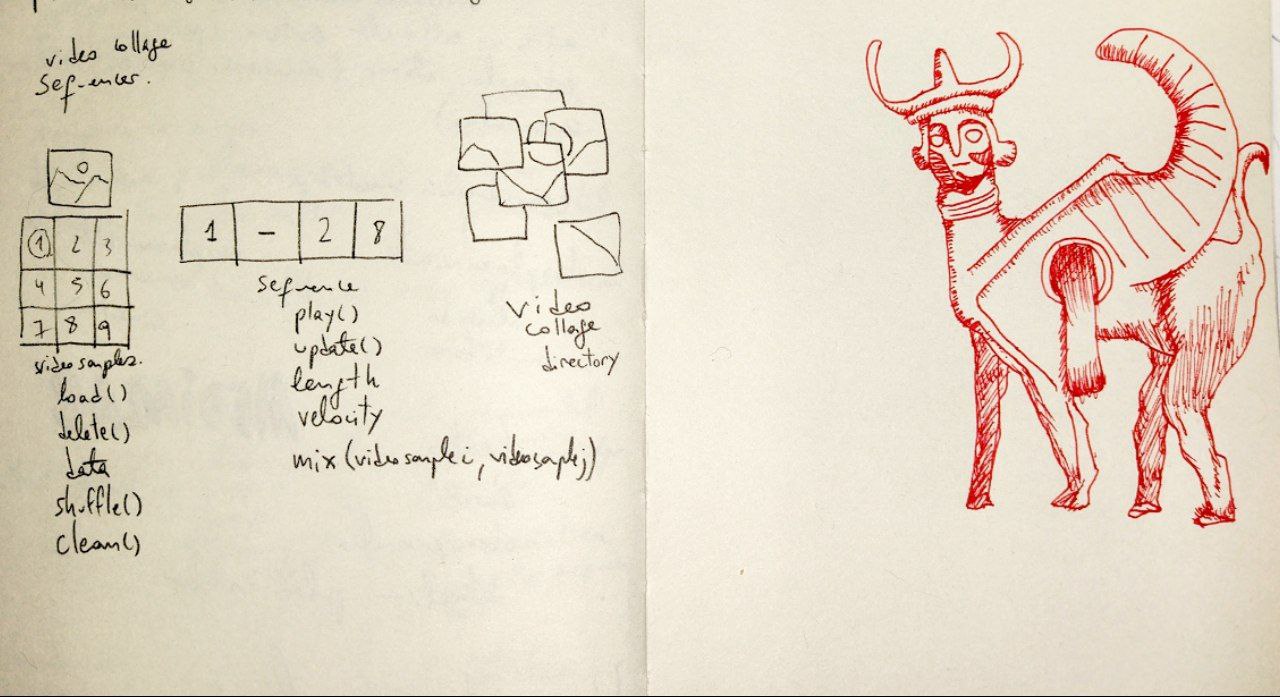 video collage
sequencer.
1 2 3
4 5 6
7 8 9
videosamples.
load()
delete()
data
shuffle()
clean()
1 - 2 8
sequence
play()
update()
length
velocity
mix (videosample i, videosample j)
video
collage
directory